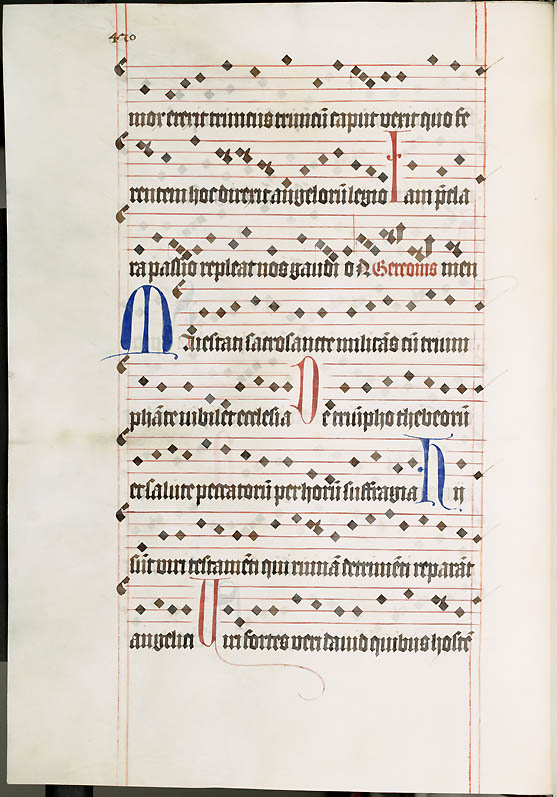 470
mox exerit truncus truncū caput vexit quo fe
rentem hoc direxit angelorū legio Iam p̄cla
ra passio repleat nos gaudi o Gereonis men
Maiestati sacrosancte militās cū trium
phāte iubilet ecclesia De triūpho thebeorū
et salute peccatorū per horū suffragia Hij
sūt viri testamēti qui ruinā detrimēti reparāt
angelici Uiri fortes veri dauid quibus hostē